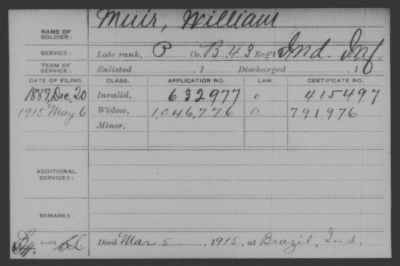 Muir, William
NAME OF SOLDIER:
SERVICE: Late rank, P Co. B. 43 Reg't Ind. Inf.
TERM OF SERVICE: Enlisted , 1 Discharged , 1
DATE OF FILING. CLASS. APPLICATION NO. LAW. CERTIFICATE NO.
1887, Dec. 20 Invalid, 632977 415497
1915 May 6 Widow, 1,046,776 791976
Minor,
ADDITIONAL SERVICES:
REMARKS:
Died Mar 5, 1915, at Brazil, Ind.